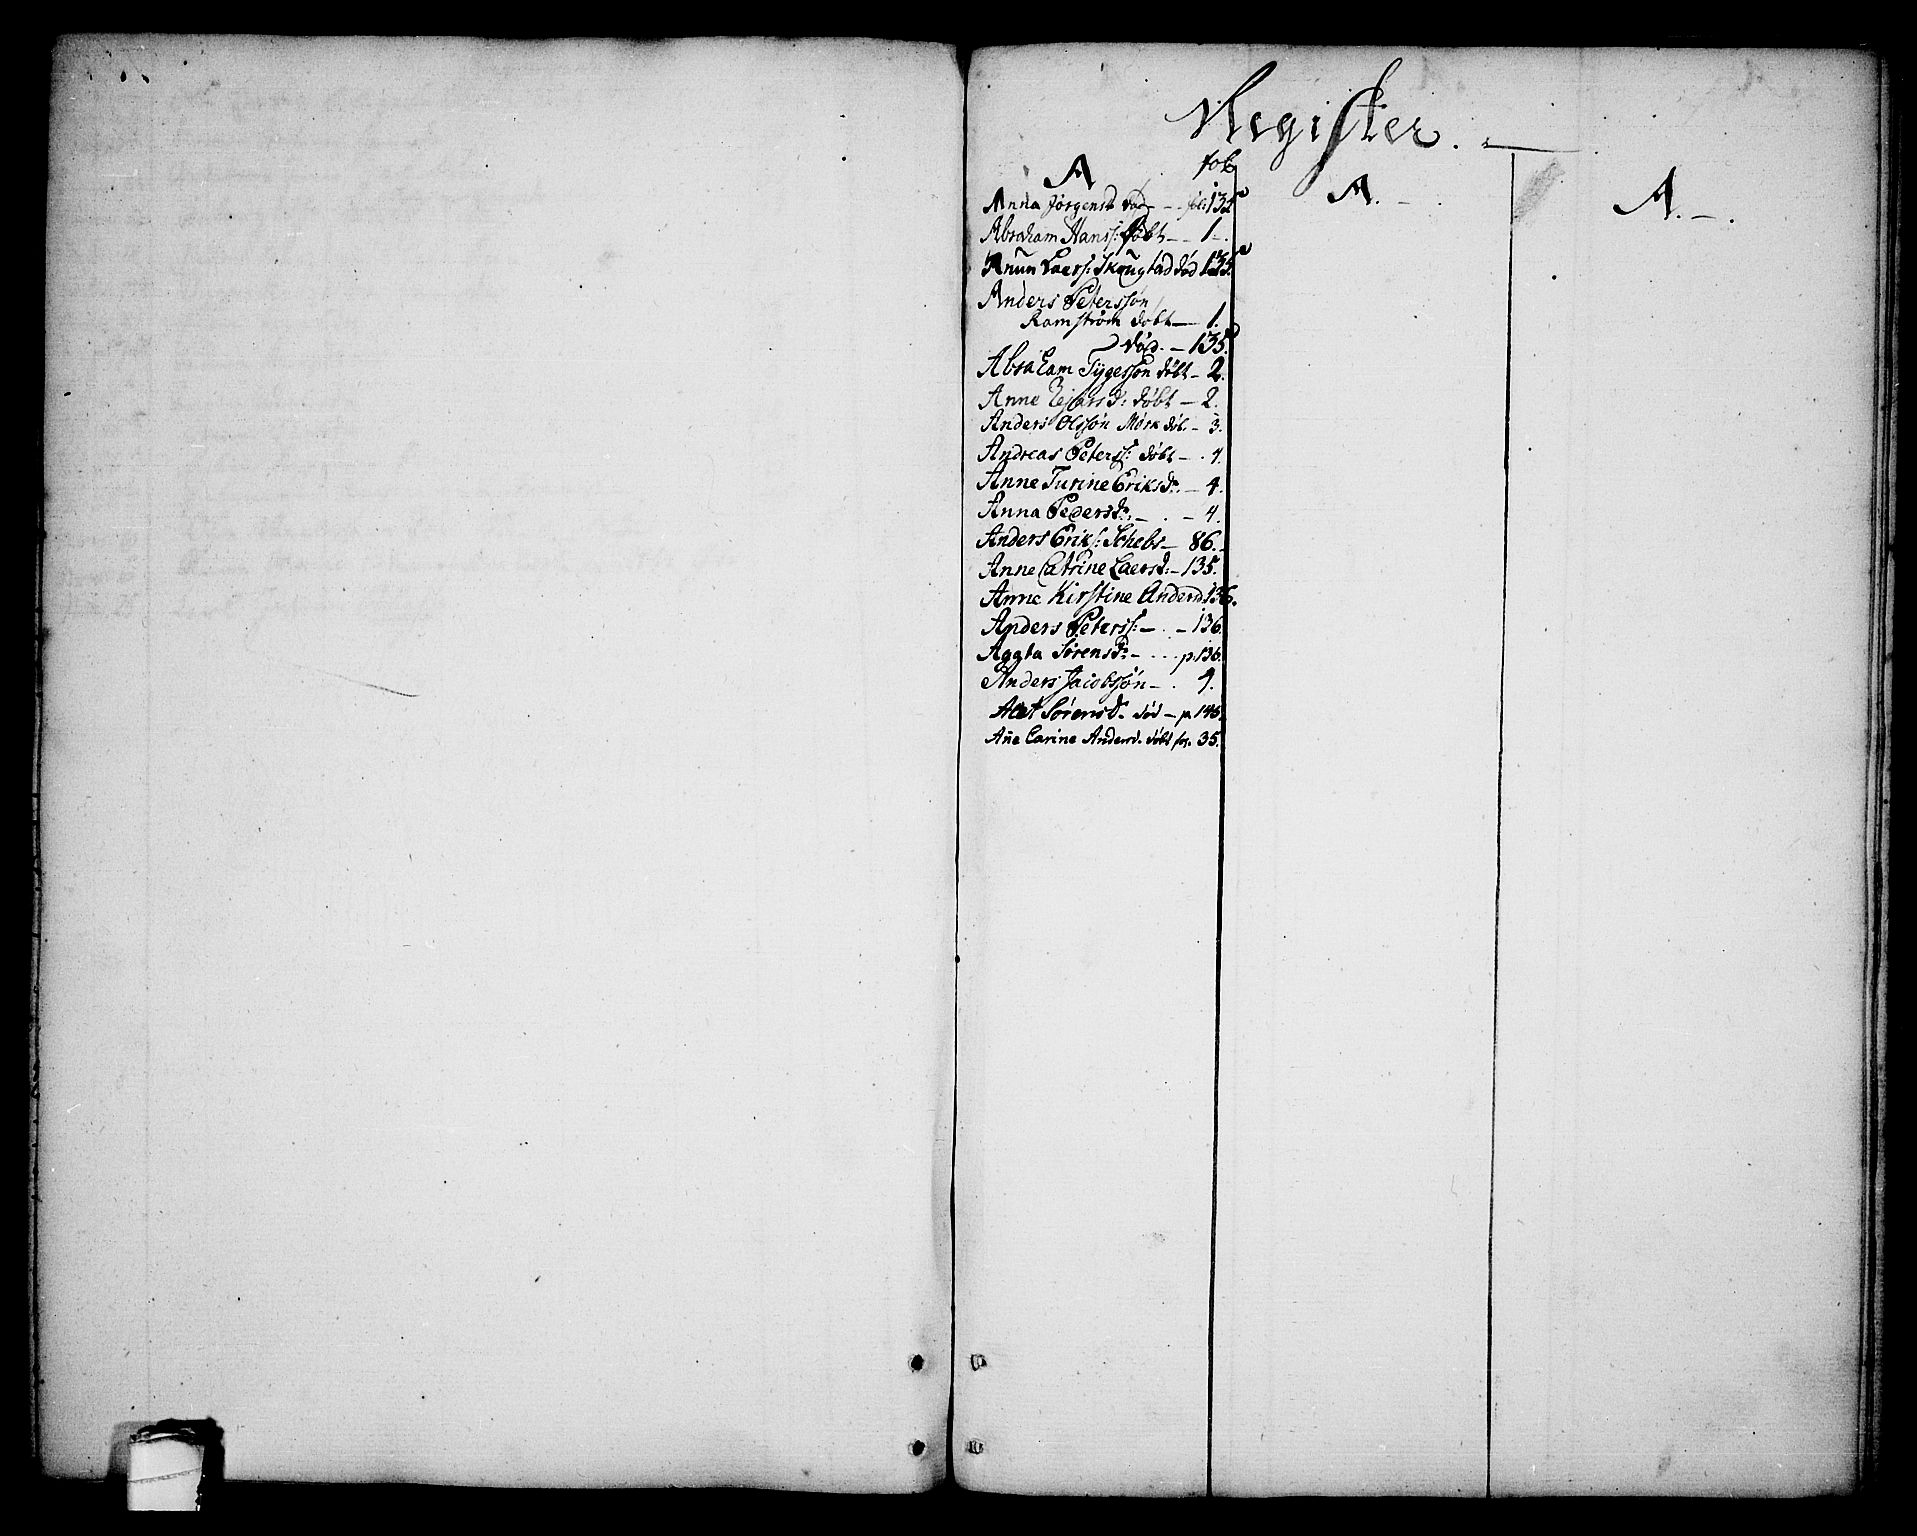 Register.
A fol
A. -
A. -.
Anna Jørgensd død - fol: 135
Abraham Hanss: døbt - 1.
Knun Laers: Skougstad død 135.
Anders Peterssøn
Ramstrøm døbt - 1.
død. - 135.
Abraham Tygessøn døbt - 2.
Anne Ejlarsd: døbt - 2.
Anders Olssøn Mørk døb. - 3.
Andreas Peterss: døbt - 4.
Anne Turine Eriksdr. - 4.
Anna Pedersdr. - . - 4.
Anders Eriks: Schebs - 86.
Anne Catrine Laersd: - 135.
Anne Kirstine Andersd. 136.
Anders Peterss: - . - 136.
Aggta Sørensdr - .... p. 136.
Anders Jacobssøn - . 9.
Alet Sørensd. død - p. 146.
Añe Carine Andersd. døbt fol. 35.